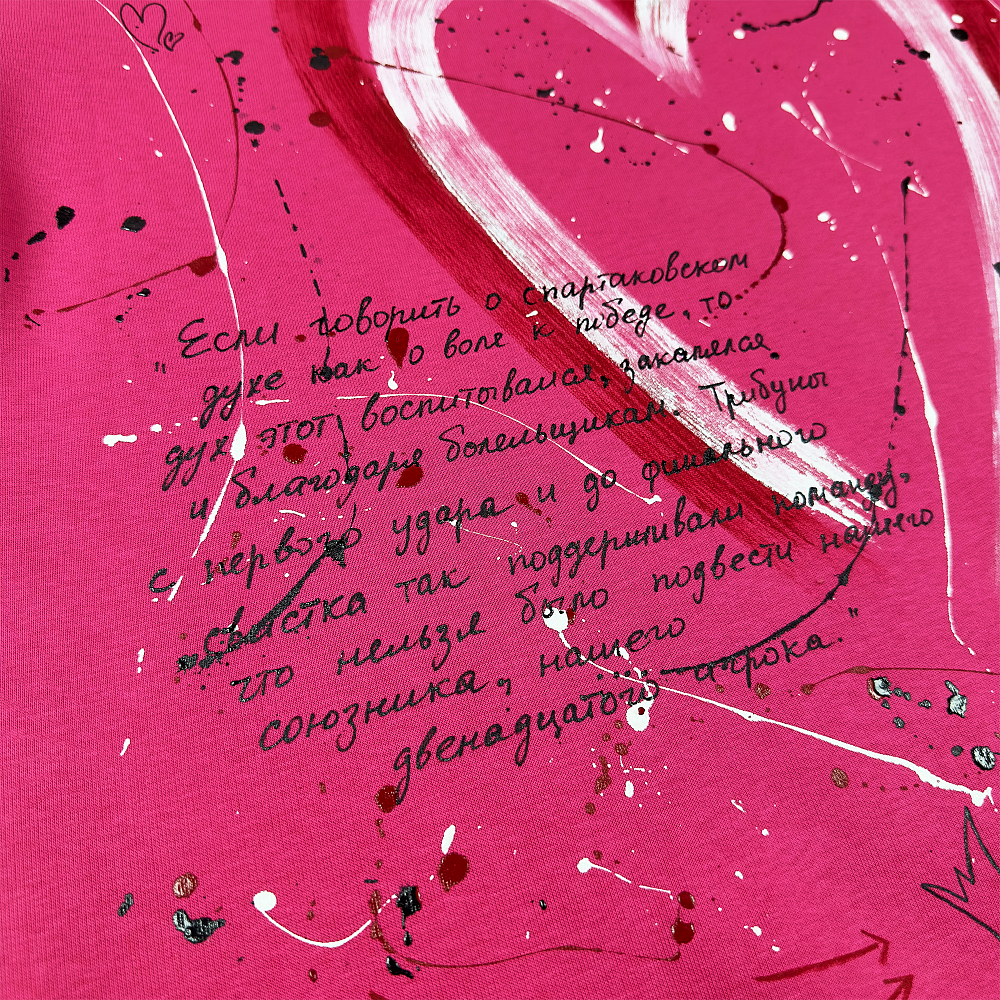 "Если говорить о спартаковском
духе как о воле к победе, то
дух этот воспитывался, закалялся
и благодаря болельщикам. Трибуны
с первого удара и до финального
свистка так поддерживали команду,
что нельзя было подвести нашего
союзника, нашего
двенадцатого игрока."